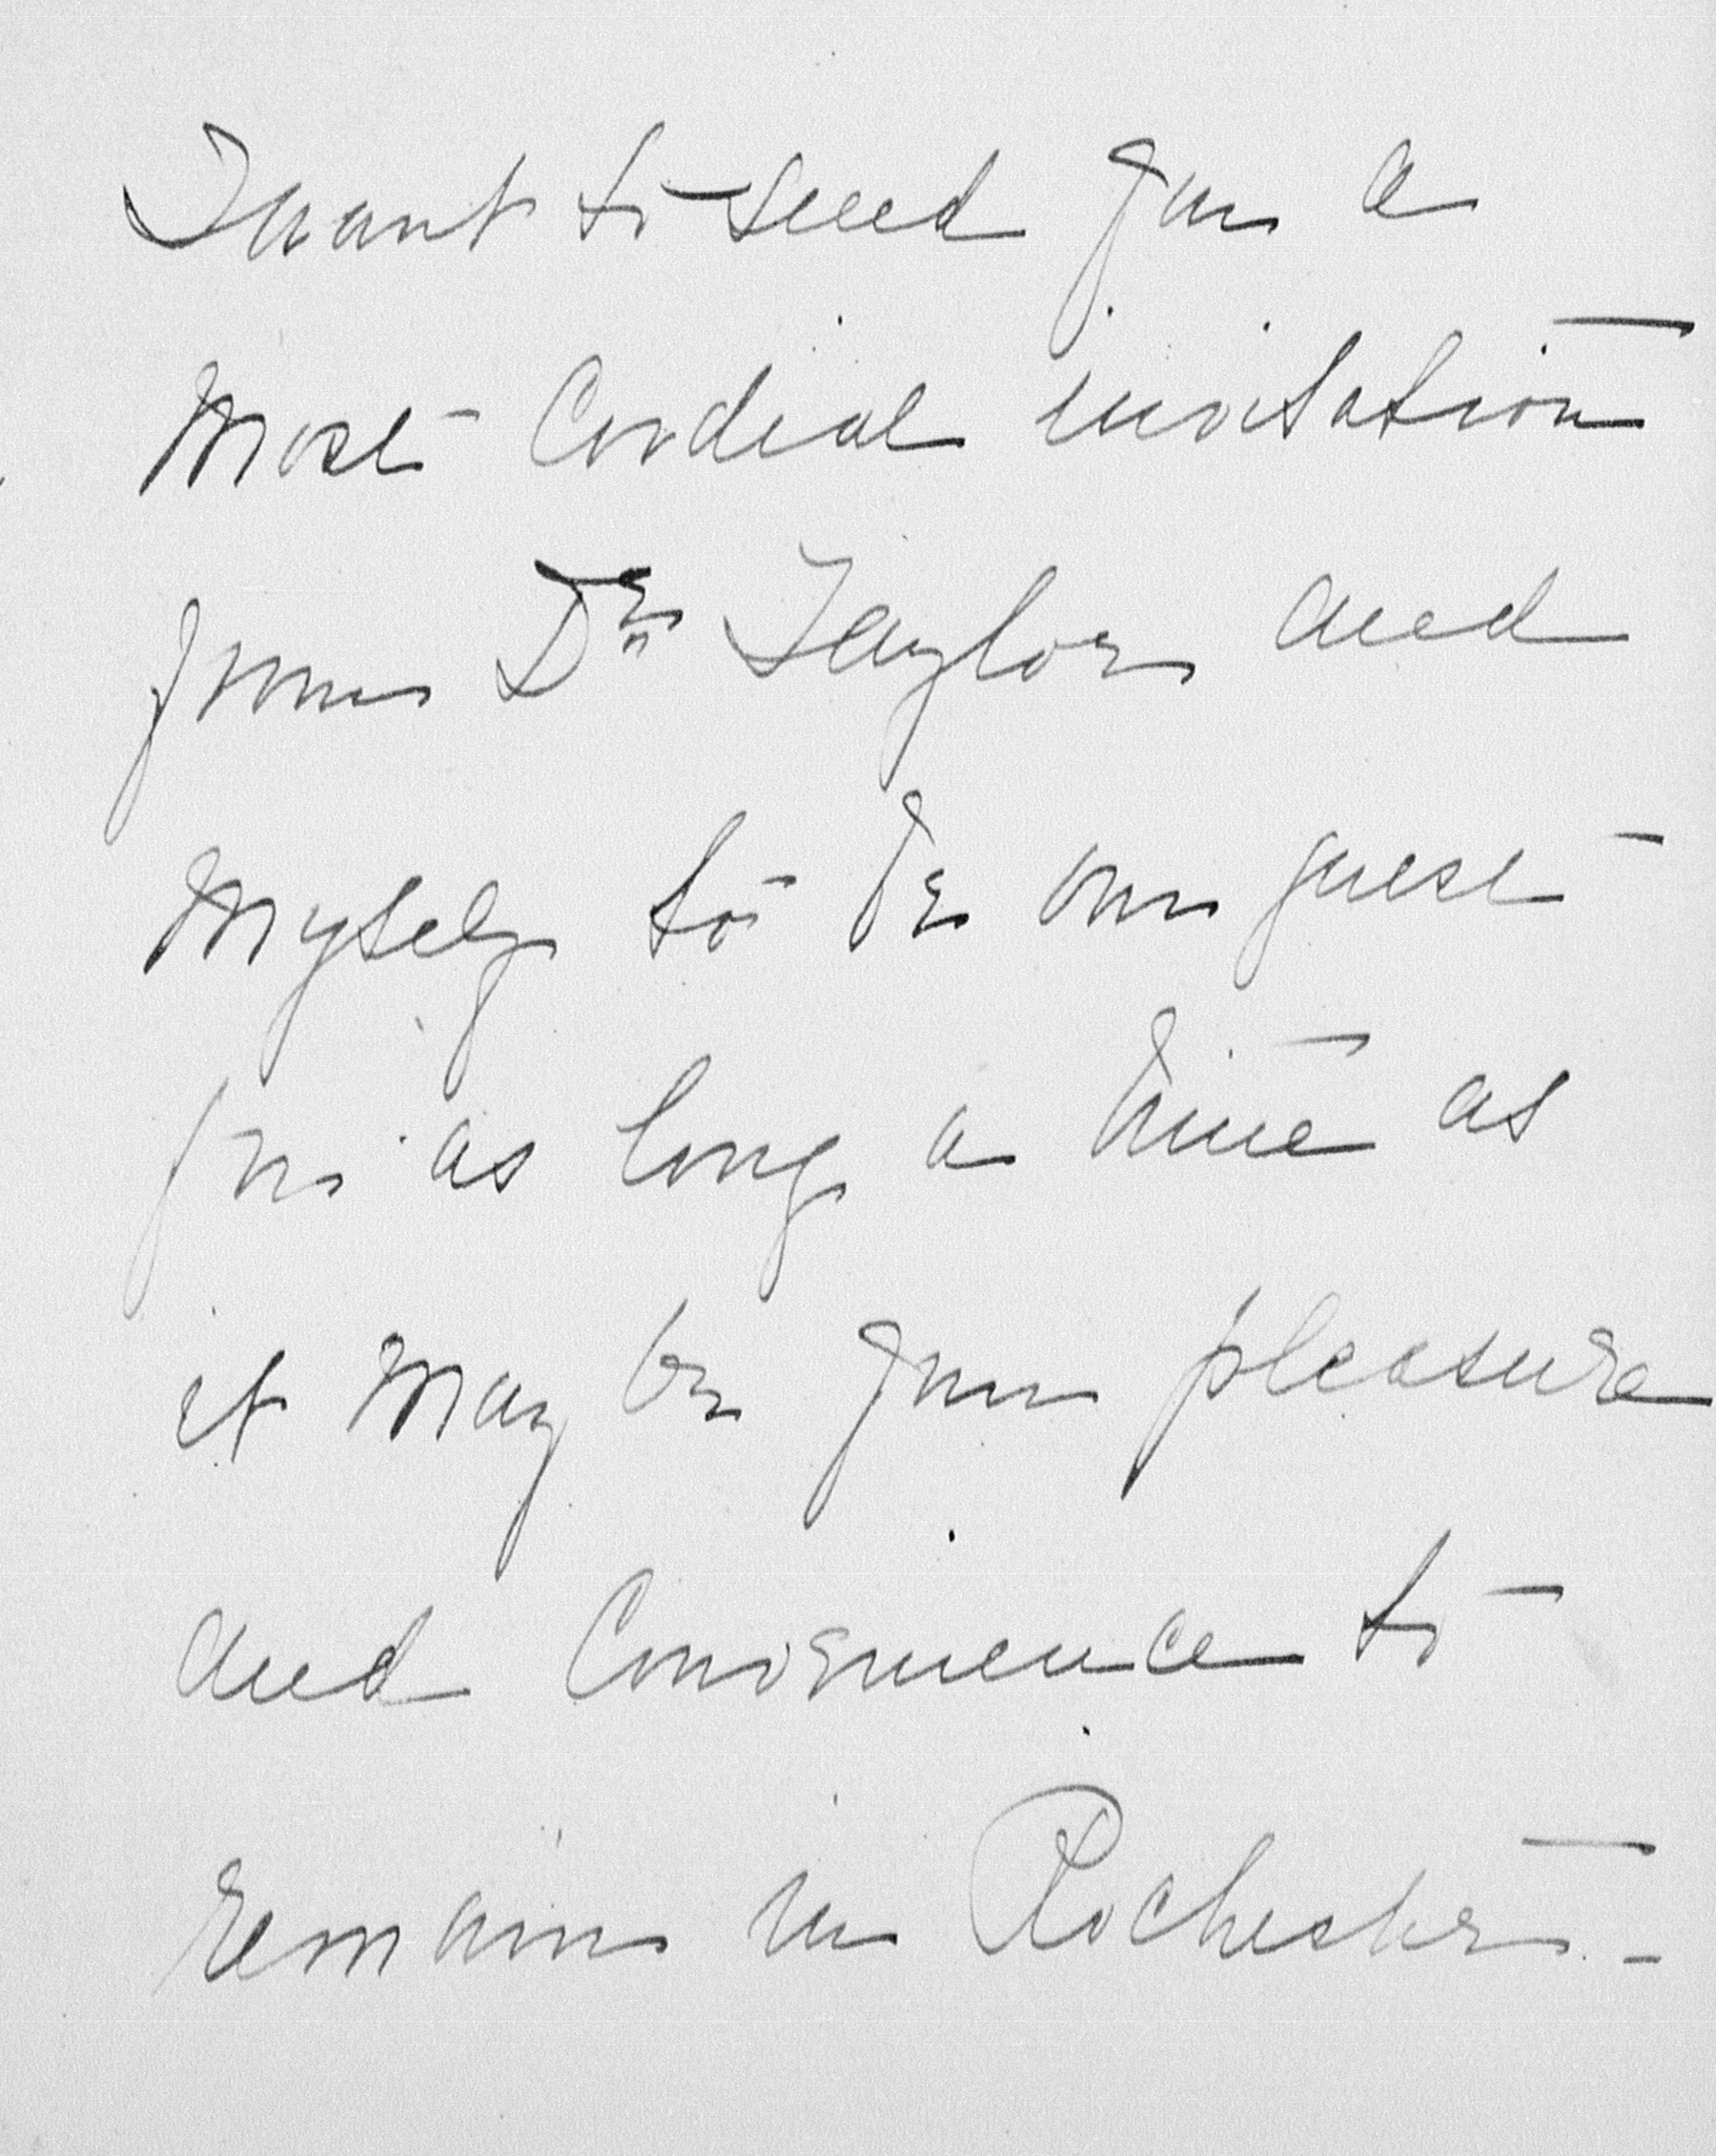 I want to send you a
most cordial invitation
from Dr Taylor and
myself to be our guest
for as long a time as
it may be your pleasure
and convenience to
remain in Rochester. -